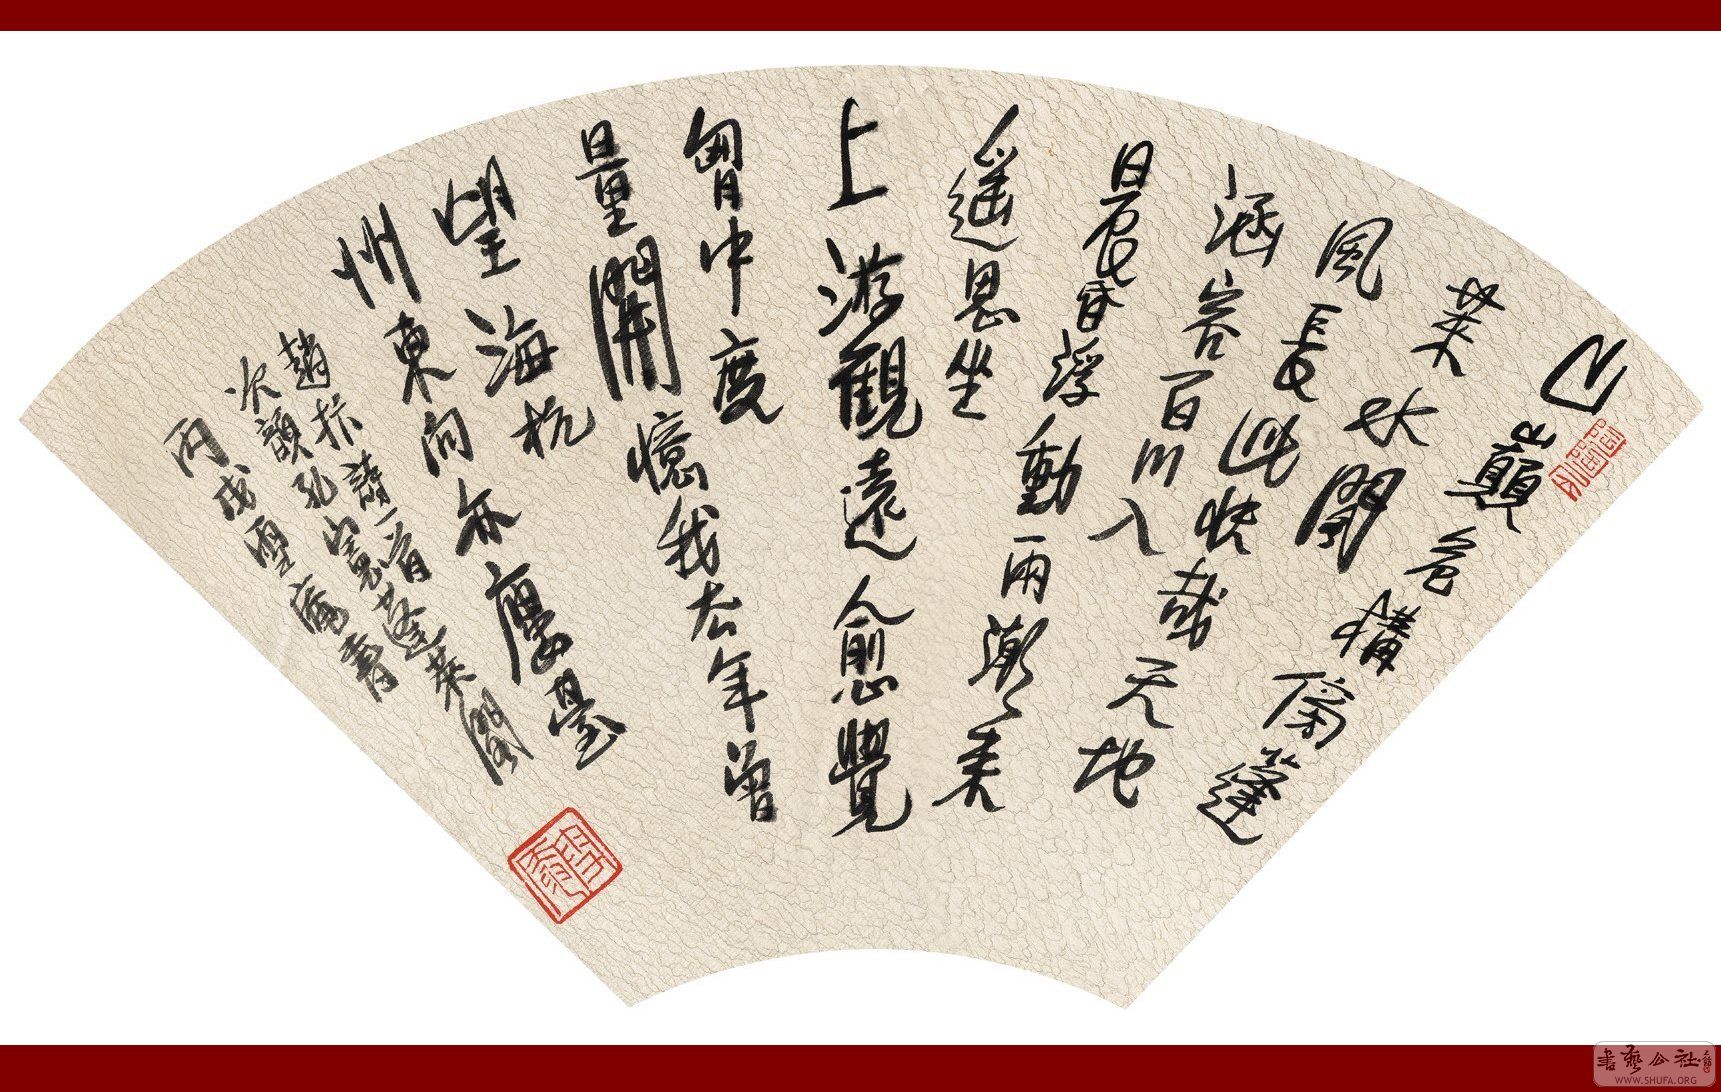 山巔危構傍蓬
萊水閣
風長此快哉天地
涵容百川入
晨昏浮動兩潮来
遥思坐
上游觀遠愈覺
胷中度
量開憶我去年曾
望海杭
州東向亦廔臺
趙抃詩一首
次韻孔憲蓬萊閣
丙戌
書藝公社
WWW.SHUFA.ORG